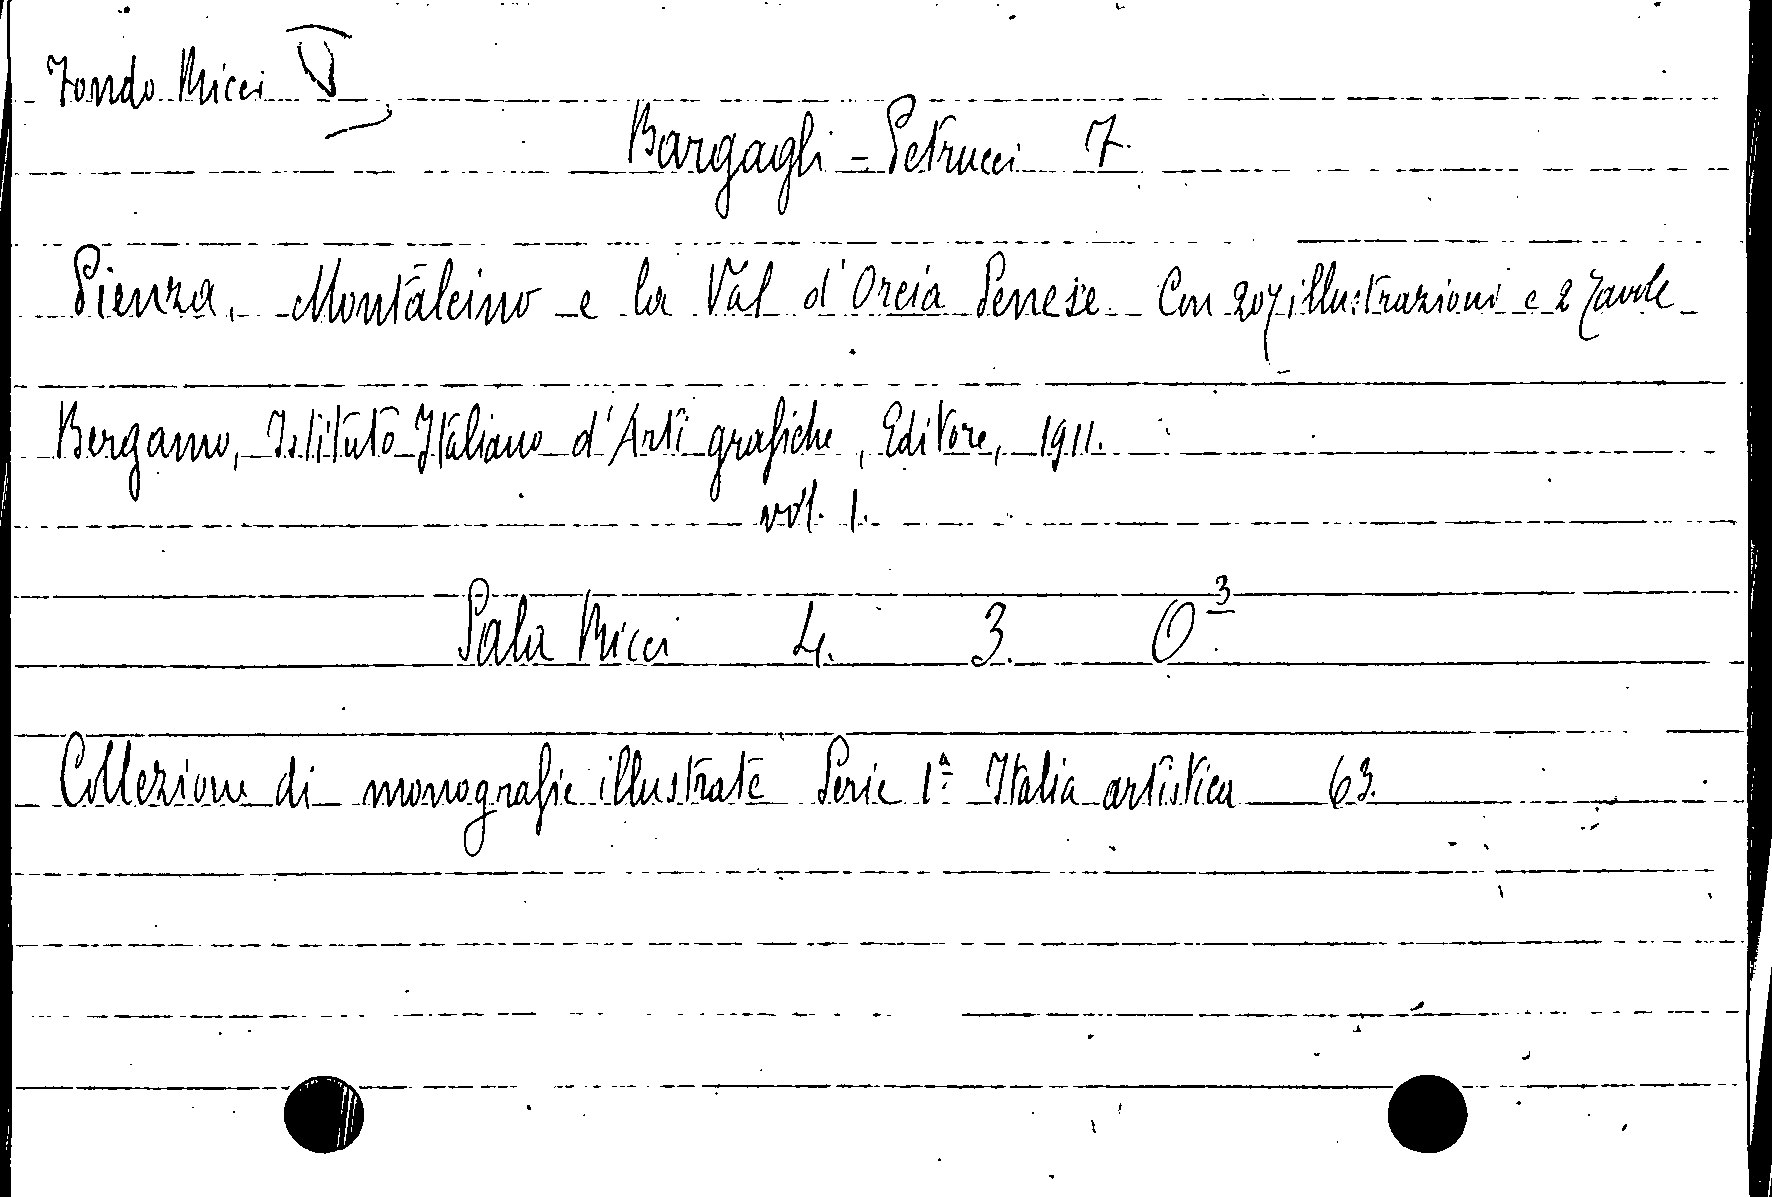 Fondo Ricci V
Bargagli-Petrucci F.
Pienza, Montalcino e la Val d'Orcia Senese. Con 207 illustrazioni e 2 tavole
Bergamo, Istituto Italiano d'Arti grafiche, Editore, 1911.
vol. 1.
Sala Ricci 4. 3. O³
Collezione di monografie illustrate Serie 1ª Italia artistica 63.